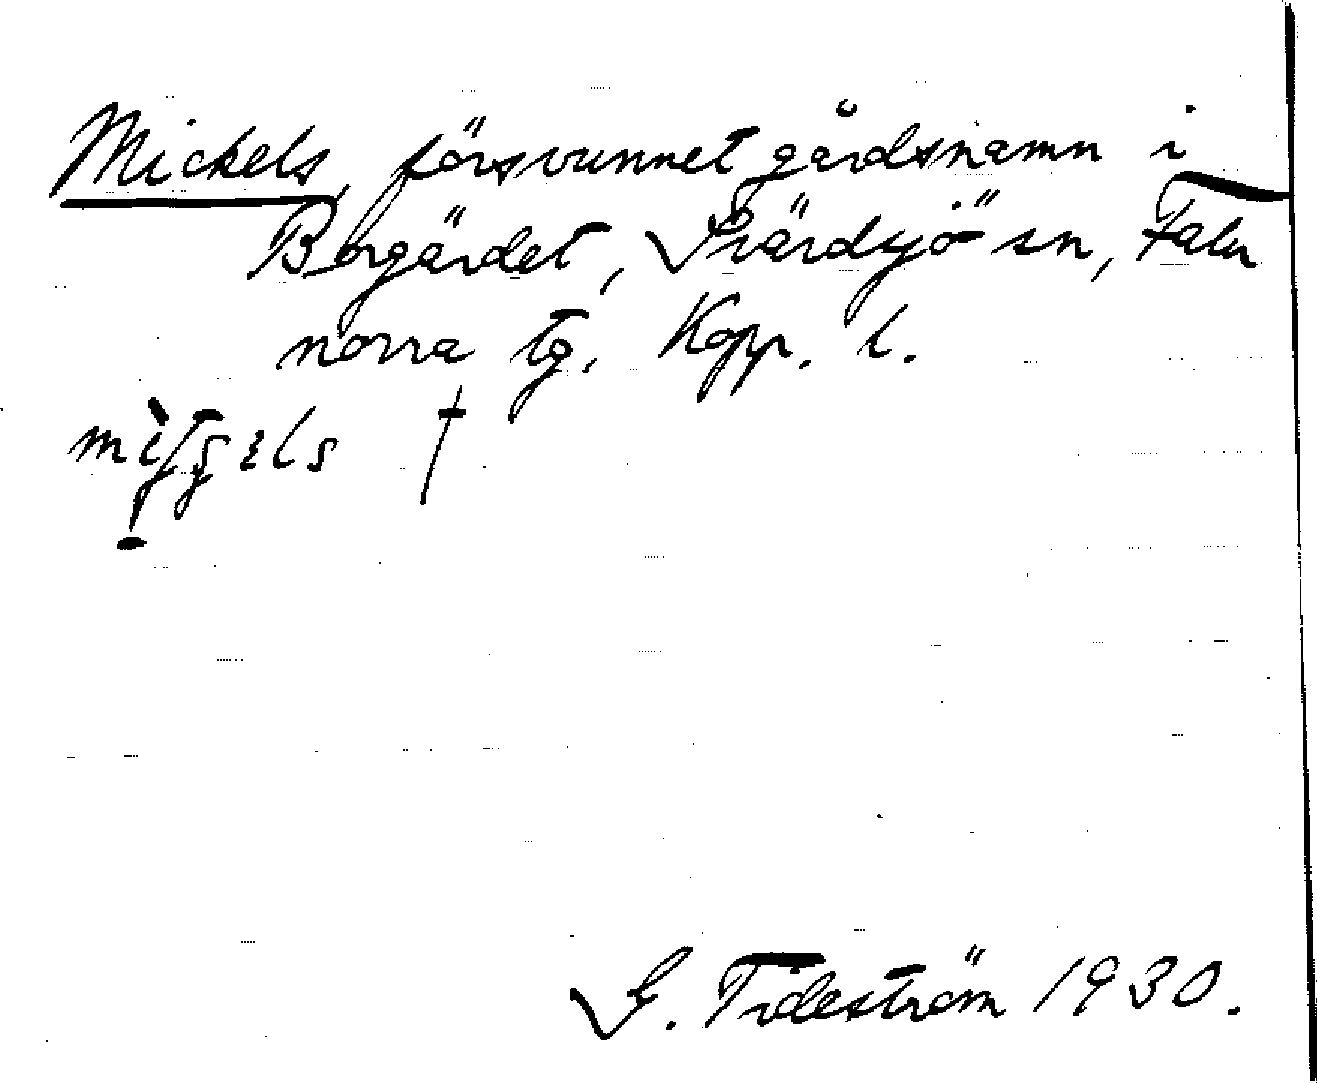 Mickels, försvunnet gårdsnamn i
Borgärdet, Svärdsjö sn, Falu
norra tg. Kopp. l.
†
G. Tideström 1930.